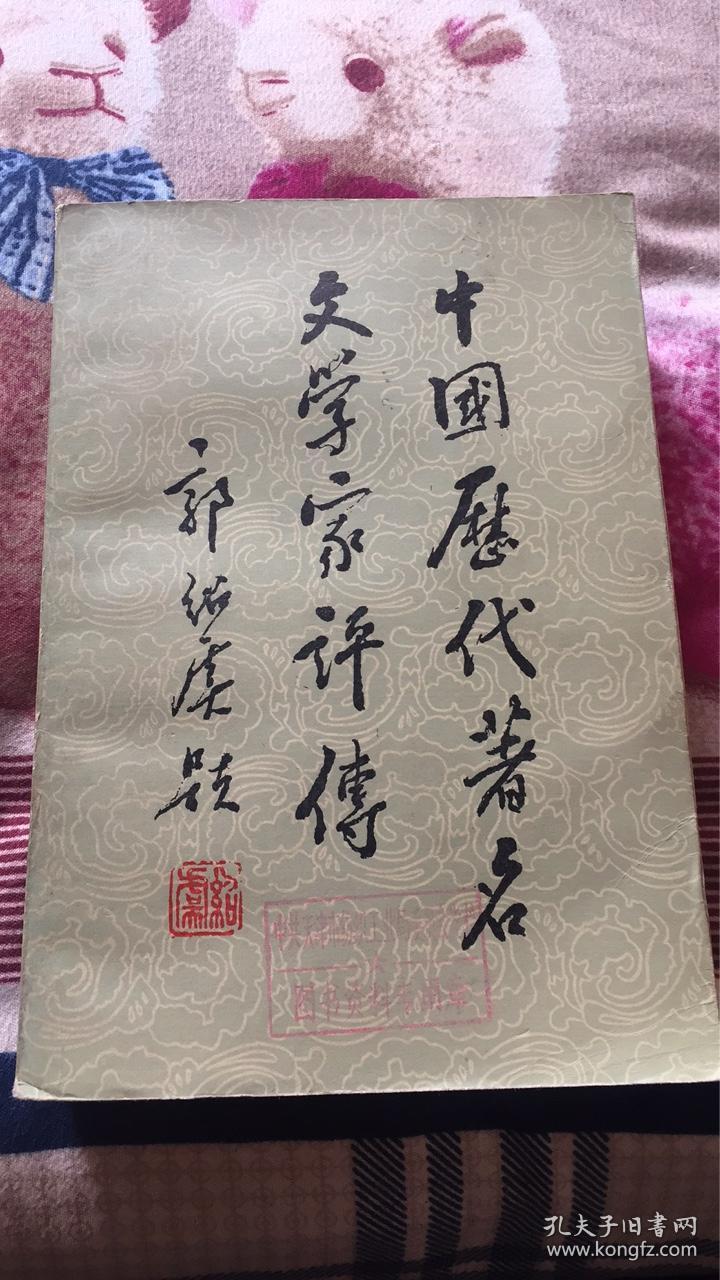 中國歷代著名
文学家評傳
郭紹虞題
紹虞
图书资料专用章
孔夫子旧書网
www.kongfz.com